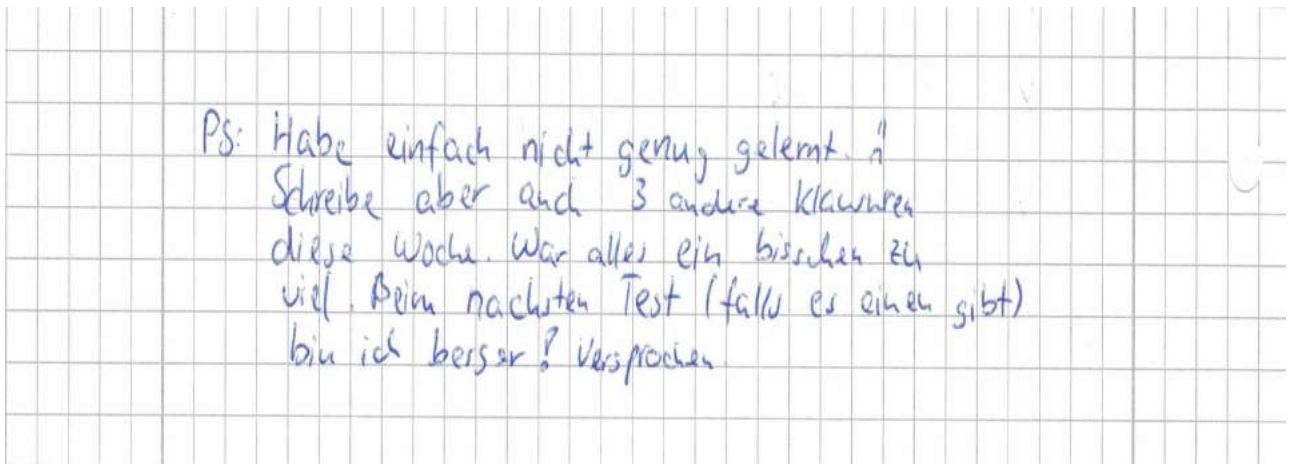 PS: Habe einfach nicht genug gelernt.
Schreibe aber auch 3 andere Klausuren
diese Woche. War alles ein bisschen zu
viel. Beim nächsten Test (falls es einen gibt)
bin ich besser! Versprochen.